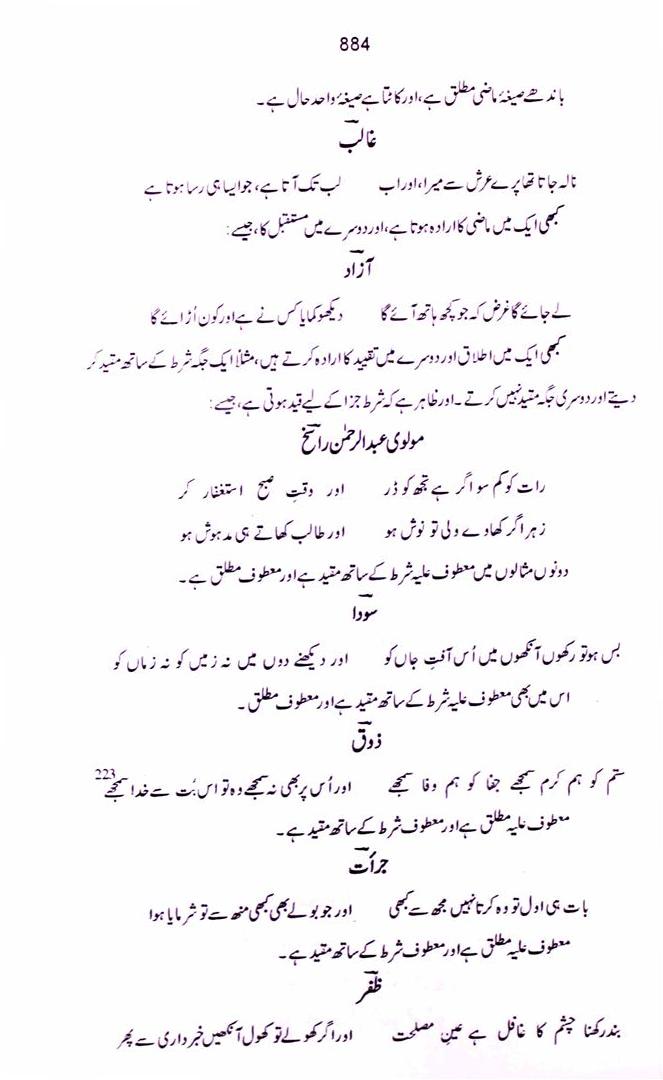 884
باندھے صیغۂ ماضی مطلق ہے، اور کاٹتا ہے صیغۂ واحد حال ہے۔
غالب
نالہ جاتا تھا پرے عرش سے میرا، اور اب لب تک آتا ہے، جو ایسا ہی رسا ہوتا ہے
کبھی ایک میں ماضی کا ارادہ ہوتا ہے، اور دوسرے میں مستقبل کا، جیسے:
آزاد
لے جائے گا غرض کہ جو کچھ ہاتھ آئے گا دیکھو کمایا کس نے ہے اور کون اُڑائے گا
کبھی ایک میں اطلاق اور دوسرے میں تقیید کا ارادہ کرتے ہیں، مثلاً ایک جگہ شرط کے ساتھ مقید کر
دیتے اور دوسری جگہ مقید نہیں کرتے۔ اور ظاہر ہے کہ شرط جزا کے لیے قید ہوتی ہے، جیسے:
مولوی عبدالرحمٰن راسخ
رات کو کم سو اگر ہے تجھ کو ڈر اور وقتِ صبح استغفار کر
زہر اگر کھاوے ولی تو نوش ہو اور طالب کھاتے ہی مدہوش ہو
دونوں مثالوں میں معطوف علیہ شرط کے ساتھ مقید ہے اور معطوف مطلق ہے۔
سودا
بس ہو تو رکھوں آنکھوں میں اُس آفتِ جاں کو اور دیکھنے دوں میں نہ زمیں کو نہ زماں کو
اس میں بھی معطوف علیہ شرط کے ساتھ مقید ہے اور معطوف مطلق۔
ذوق
ستم کو ہم کرم سمجھے جفا کو ہم وفا سمجھے اور اُس پر بھی نہ سمجھے وہ تو اس بُت سے خدا سمجھے 223
معطوف علیہ مطلق ہے اور معطوف شرط کے ساتھ مقید ہے۔
جرأت
بات ہی اول تو وہ کرتا نہیں مجھ سے کبھی اور جو بولے بھی کبھی منھ سے تو شرمایا ہوا
معطوف علیہ مطلق ہے اور معطوف شرط کے ساتھ مقید ہے۔
ظفر
بند رکھنا چشم کا غافل ہے عینِ مصلحت اور اگر کھولے تو کھول آنکھیں خبرداری سے پھر